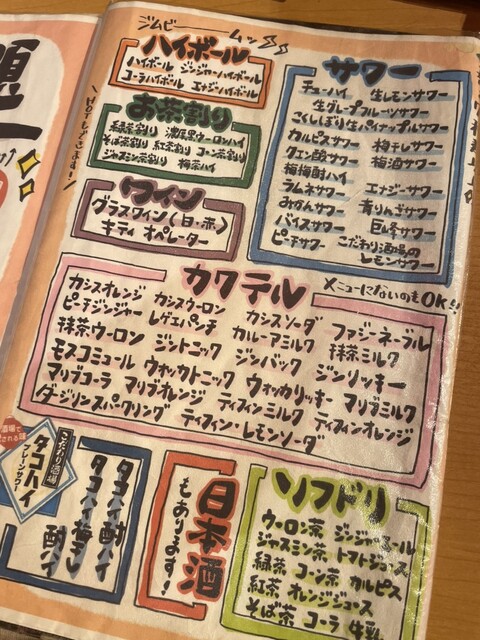 ジムビームッ
ハイボール
ハイボール ジンジャーハイボール
コーラハイボール エナジーハイボール
お茶割り
緑茶割り 濃厚黒ウーロンハイ
そば茶割り 紅茶割り コーン茶割り
ジャスミン茶割り 梅茶ハイ
HOTもできます!
ワイン
グラスワイン(白・赤)
キティ オペレーター
サワー
チューハイ 生レモンサワー
生グレープフルーツサワー
ごくしぼり生パイナップルサワー
カルピスサワー 梅干しサワー
クエン酸サワー 梅酒サワー
梅梅酎ハイ
ラムネサワー エナジーサワー
みかんサワー 青りんごサワー
バイスサワー 巨峰サワー
ピーチサワー こだわり酒場の
レモンサワー
カクテル
メニューにないのもOK!!
カシスオレンジ カシスウーロン カシスソーダ ファジーネーブル
ピーチジンジャー レゲエパンチ カルーアミルク 抹茶ミルク
抹茶ウーロン ジントニック ジンバック ジンリッキー
モスコミュール ウォッカトニック ウォッカリッキー マリブミルク
マリブコーラ マリブオレンジ ティフィンミルク ティフィンオレンジ
ダージリンスパークリング ティフィン・レモンソーダ
こだわり酒場
タコハイ
プレーンサワー
タコハイ酎ハイ
タコハイ梅干し
酎ハイ
日本酒
もあります!
ソフドリ
ウーロン茶 ジンジャーエール
ジャスミン茶 トマトジュース
緑茶 コーン茶 カルピス
紅茶 オレンジジュース
そば茶 コーラ 牛乳